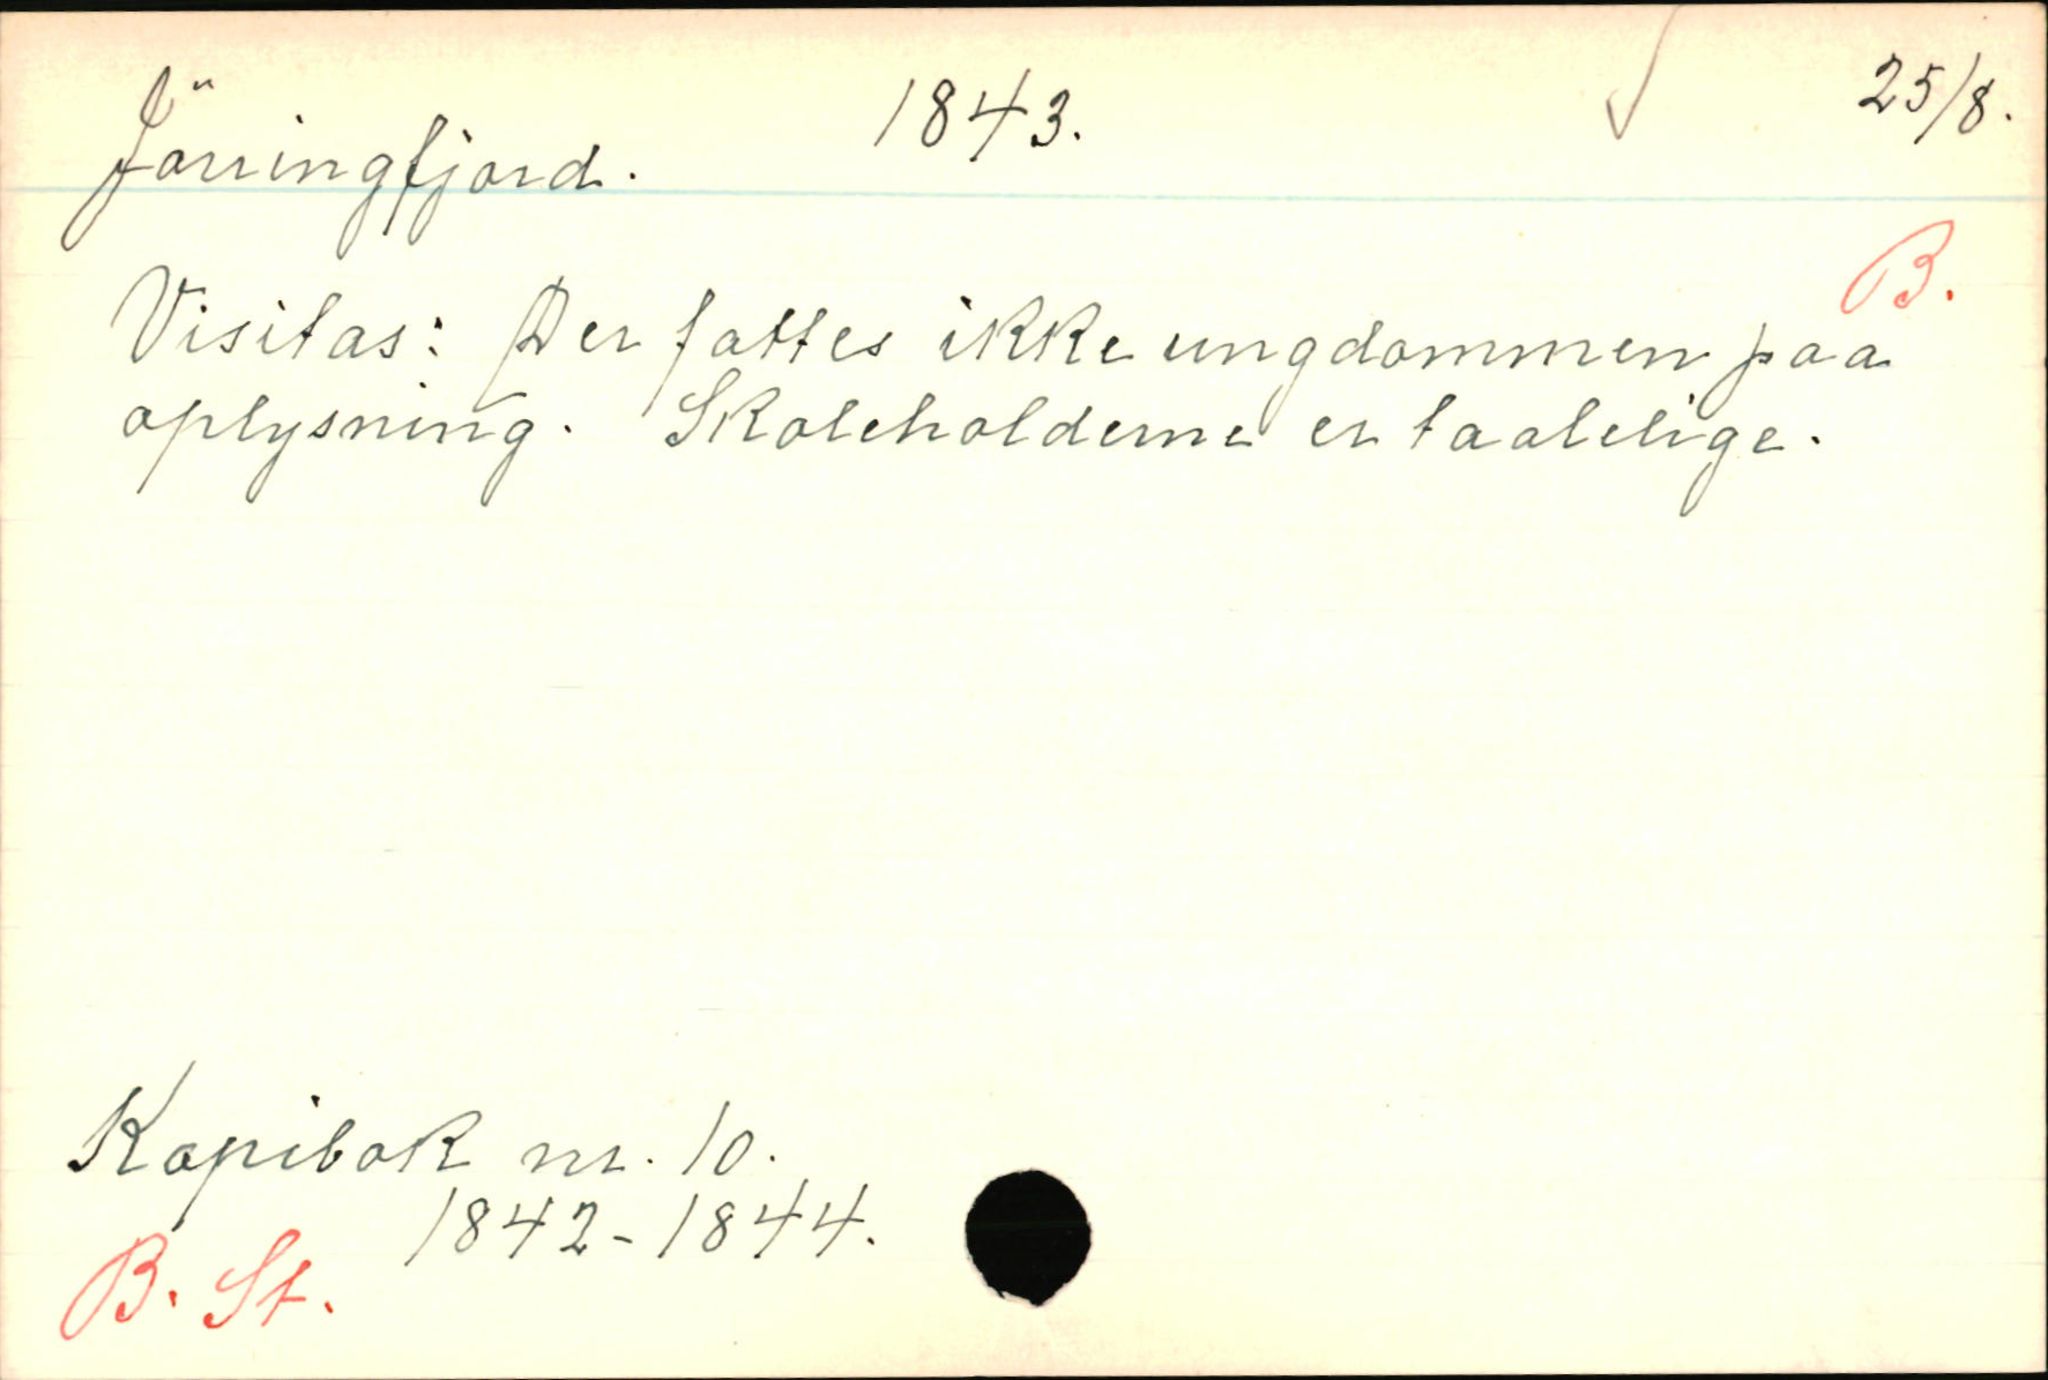 Jörringfjord. 1843. 25/8.
B.
Visitas: Der fattes ikke ungdommen paa
oplysning. Skoleholderne er taalelige.
Kopibok nr. 10.
1842-1844.
B. St.